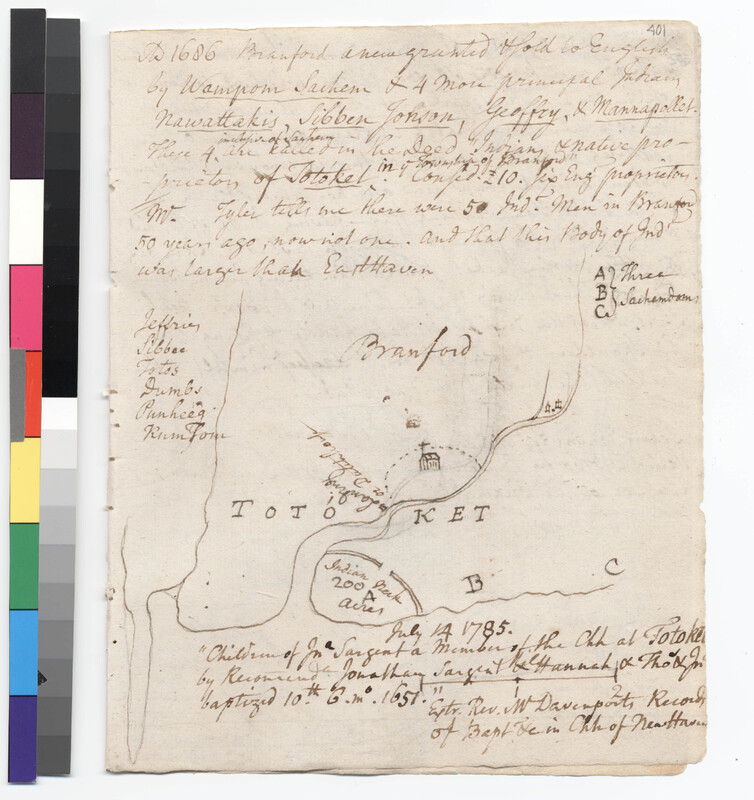 401
AD 1686 Branford anew granted & sold to English
by Wampom Sachem & 4 more principal Indians
Nawattakis, Sibben Johson, Geoffry, & Mannapollet.
These 4, inclusive of Sachem are called in the Deed, Indians & native pro-
prietors of Totoket in ye Township of Branford" Consid. £10. six Eng proprietors.
Mr. Tyler tells me there were 50 Indn Men in Branford
50 years ago, now not one. And that this Body of Indn
was larger than East Haven
A } Three
B } Sachemdoms
C
Jeffries
Sibbee
Totos
Dumbs
Punheeg
KumTom
Branford
TOTOKET
Indian Neck
200
A
acres
B
C
July 14 1785.
"Children of Jna Sargent a Member of the Chh at Totoket
by Recommenda Jonathan Sargent & Hannah, & Thos & Jno
baptized 10th 6. mo. 1651."
Extr. Rev. Mr Davenports Records
of Bapt &c in Chh of New Haven